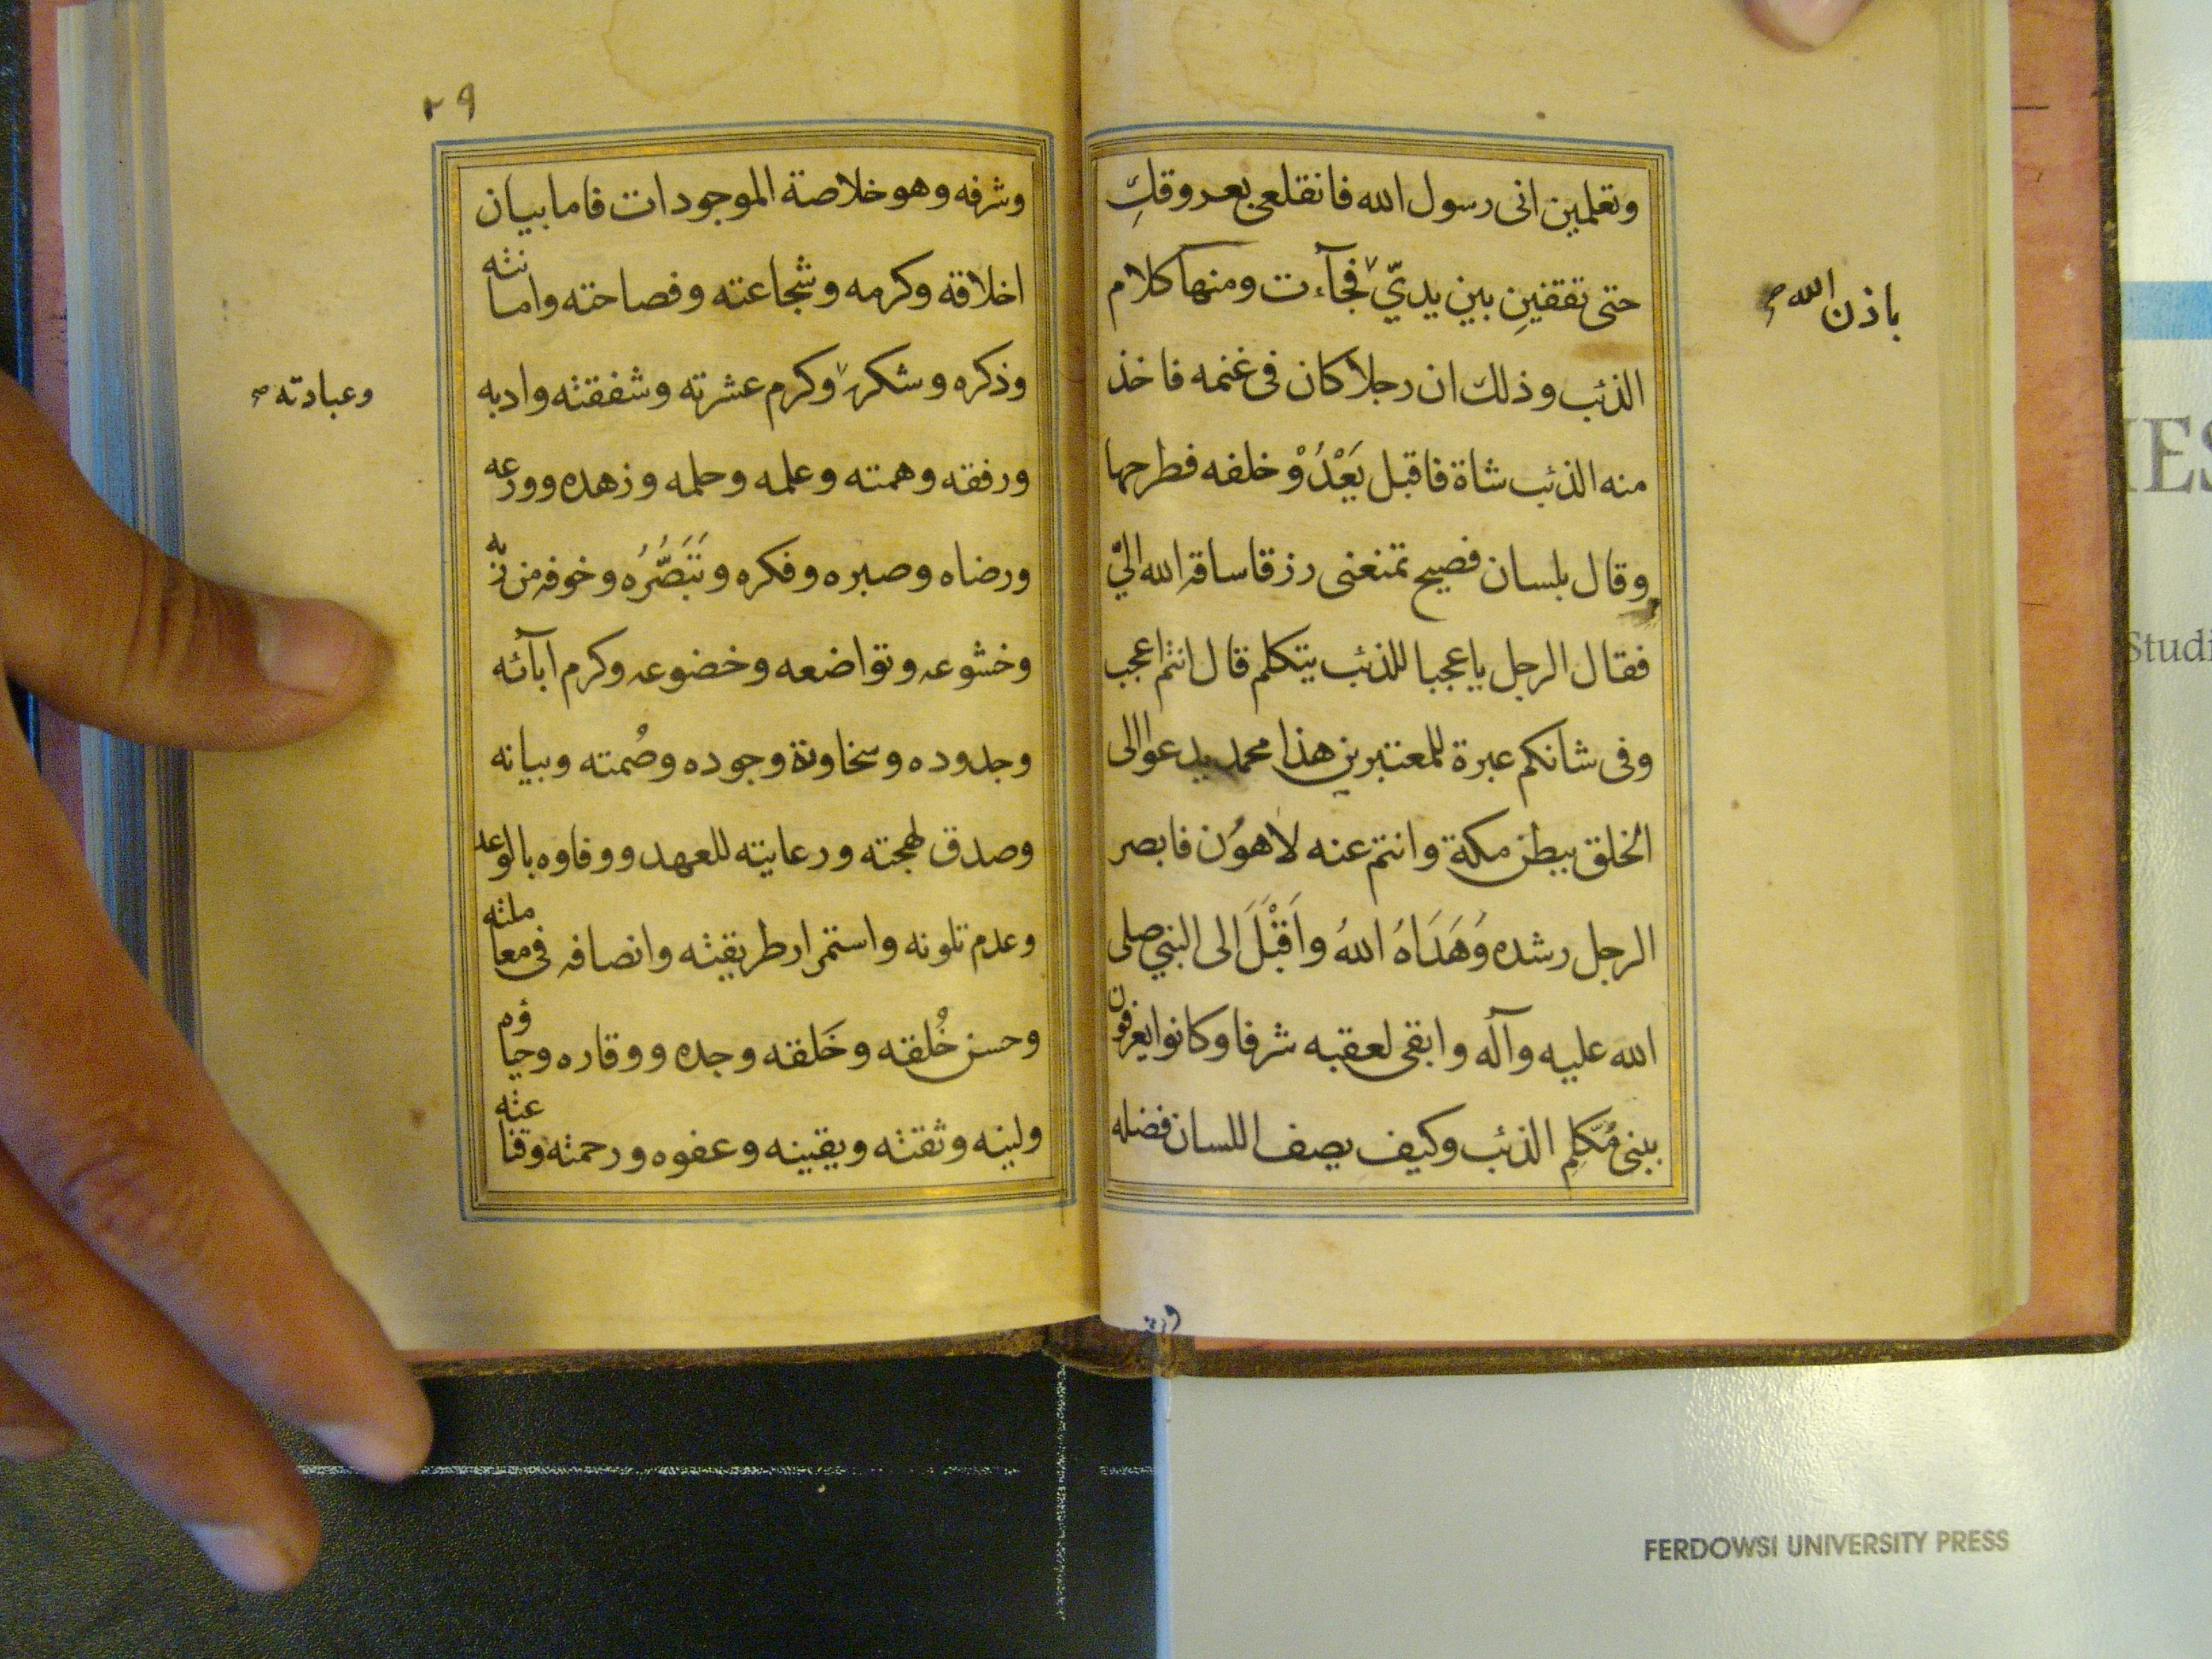 وتعلمين انى رسول الله فانقلعى بعروقكِ
حتى تقفينِ بين يديّ فجآءت ومنها كلام
باذن الله صح
الذئب وذلك ان رجلا كان فى غنمه فاخذ
منه الذئب شاة فاقبل يَعْدُوْ خلفه فطرحها
وقال بلسان فصيح تمنعنى رزقا ساقه الله اليّ
فقال الرجل ياعجبا للذئب يتكلم قال انتم اعجب
وفى شانكم عبرة للمعتبرين هذا محمد يدعوا الى
الخلق ببطن مكة وانتم عنه لاهوُن فابصر
الرجل رشده وَهَدَاهُ اللهُ واَقْبَلَ الى النبي صلى
الله عليه وآله وابقى لعقبه شرفا وكانوا يعرفون
ببنى مُكَلِّمِ الذئب وكيف يصف اللسان فضله
٢٩
وشرفه وهو خلاصة الموجودات فاما بيان
اخلاقه وكرمه وشجاعته وفصاحته وامانته
وذكره وشكره وكرم عشرته وشفقته وادبه
وعبادته صح
ورفقه وهمته وعلمه وحلمه وزهده وورعه
ورضاه وصبره وفكره وتَبَصُّرُه وخوفه من ربه
وخشوعه وتواضعه وخضوعه وكرم ابآئه
وجدوده وسخاوتة وجوده وصُمته وبيانه
وصدق لهجته ورعايته للعهد ووفاوه بالوعد
وعدم تلونه واستمرار طريقته وانصافه فى معاملته
وحسن خُلقته وخَلقته وجده ووقاره وحياؤم
ولينه وثقته ويقينه وعفوه ورحمته وقناعته
IES
Studi
FERDOWSI UNIVERSITY PRESS